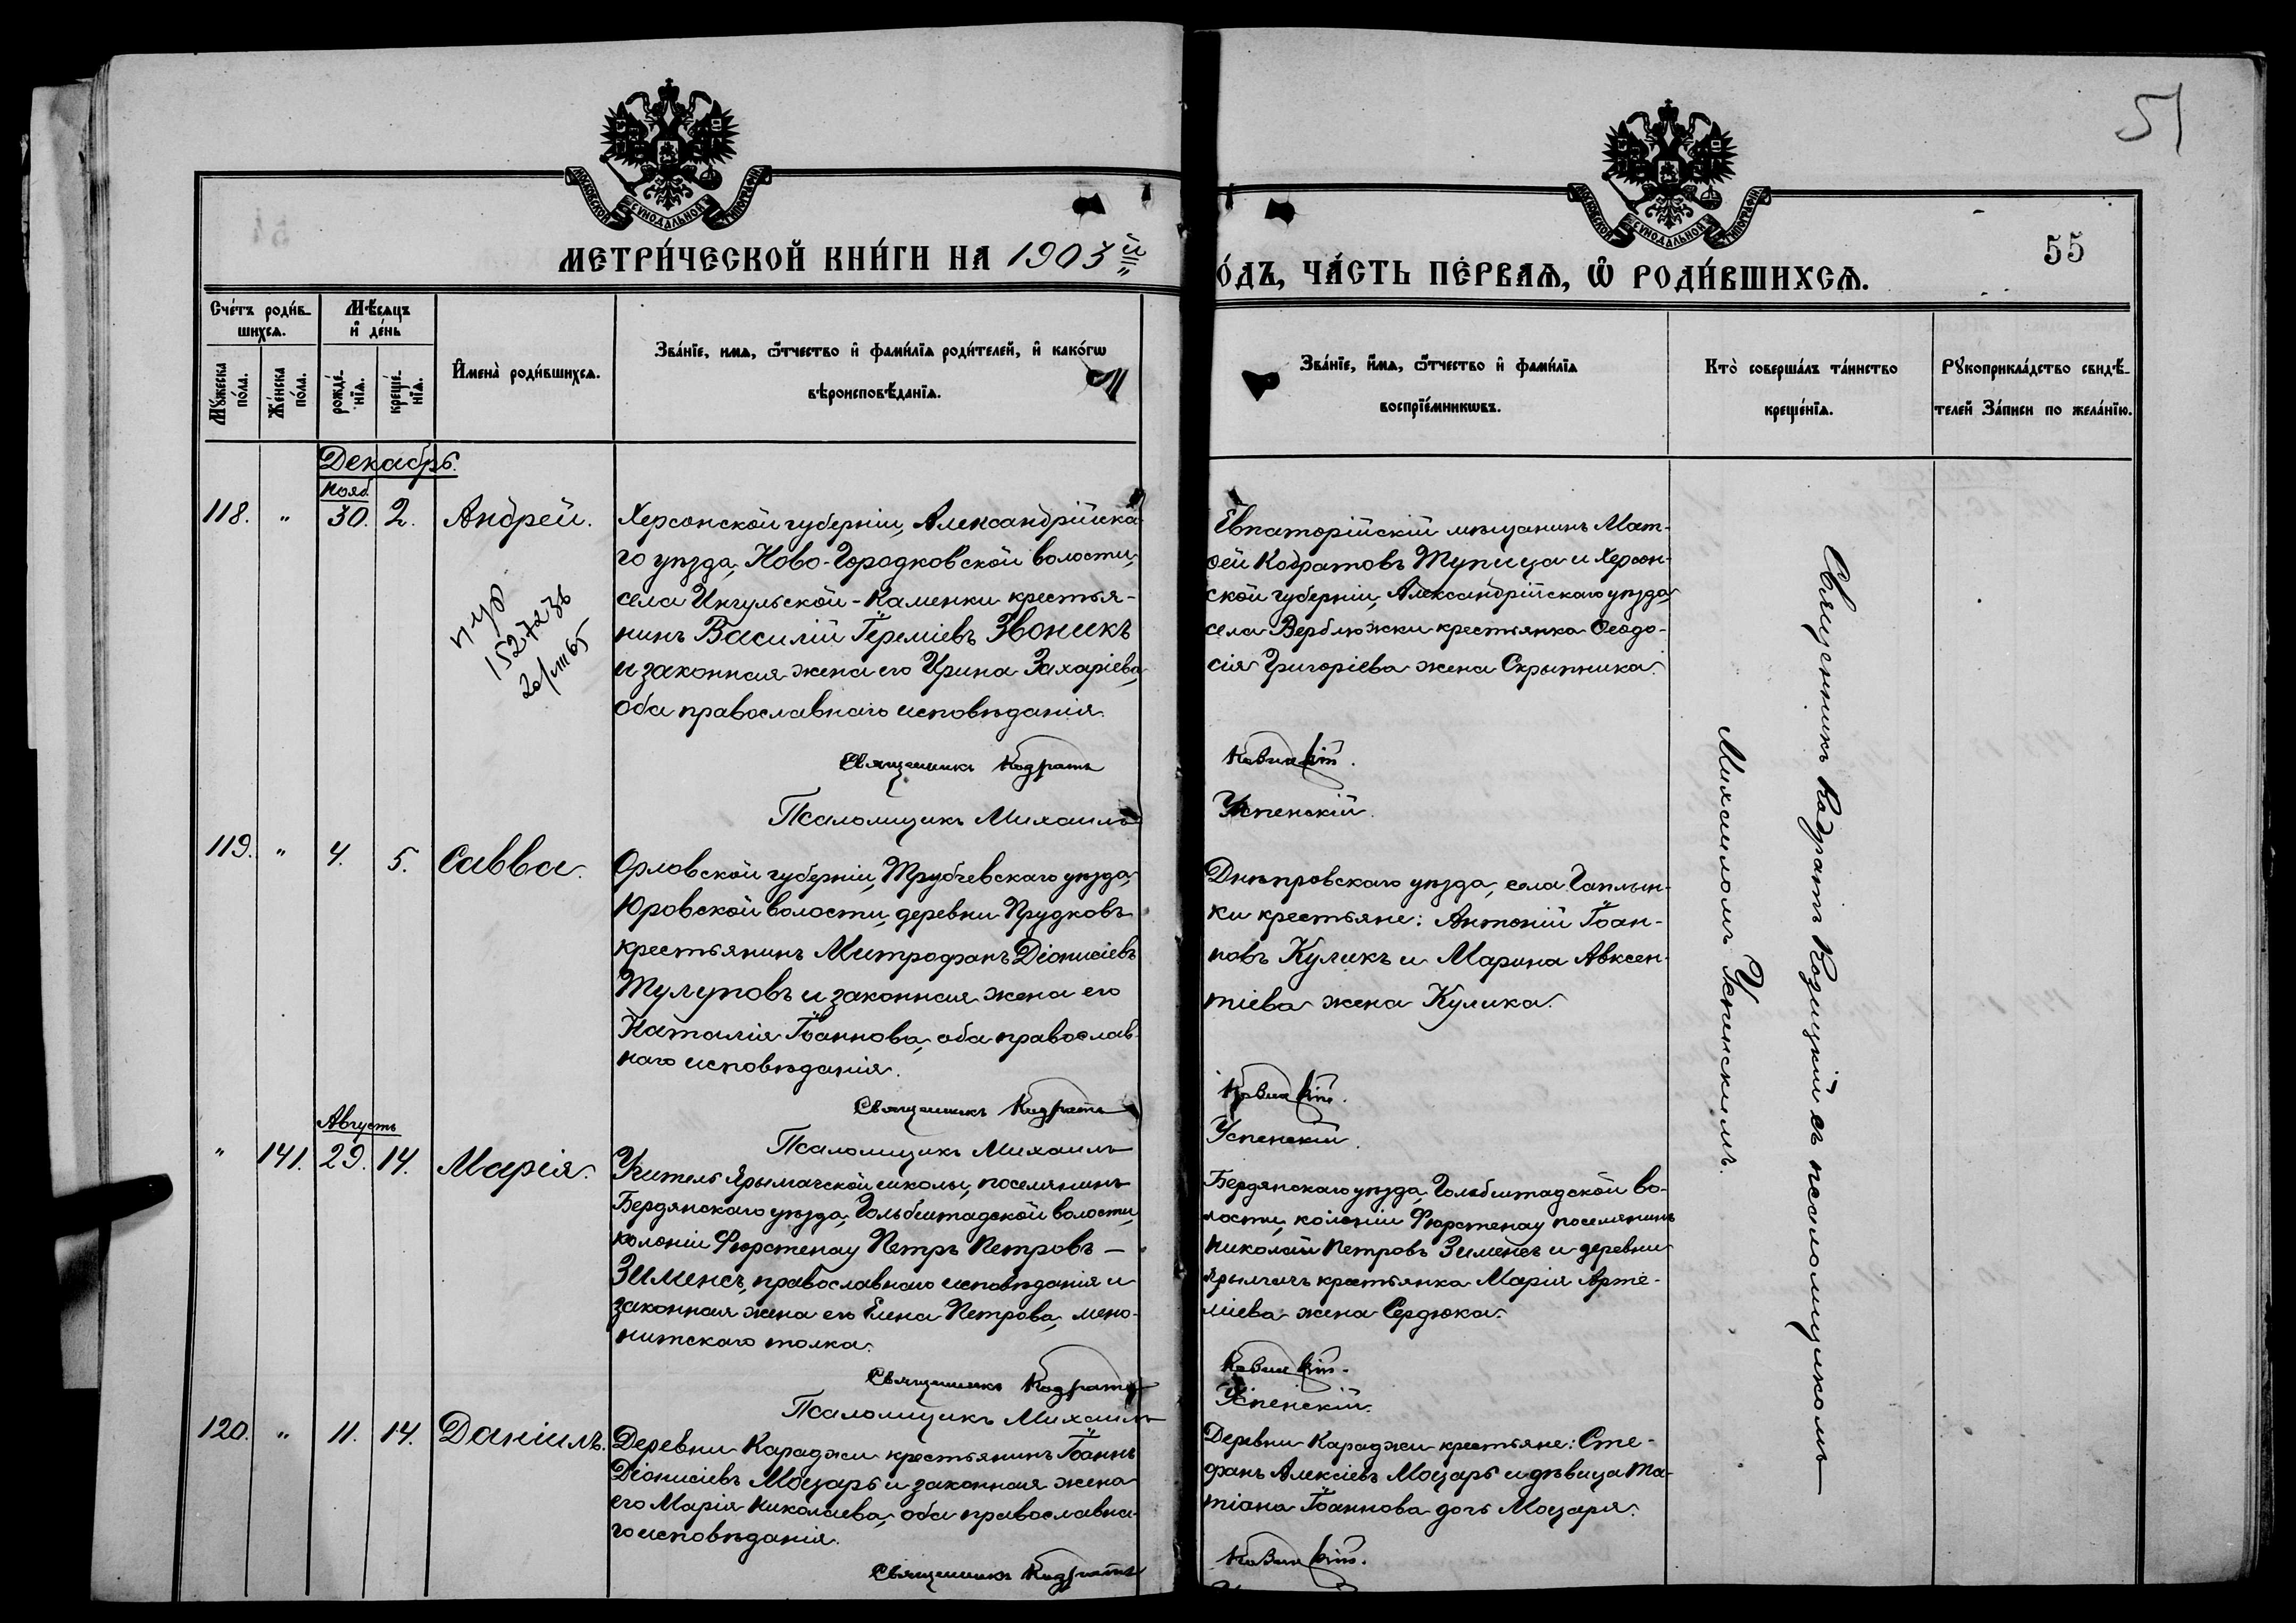 51
МОСКОВСКОЙ СѴНОДАЛЬНОЙ ТИПОГРАФІИ
МОСКОВСКОЙ СѴНОДАЛЬНОЙ ТИПОГРАФІИ
55
МЕТРИ́ЧЕСКОЙ КНИ́ГИ НА 1903 й
О́ДЪ, ЧА́СТЬ ПЕ́РВАѦ, Ѡ҆ РОДИ́ВШИХСѦ.
Сче́тъ роди́в-
шихсѧ.
Мѣ́сѧцъ
и҆ де́нь
Мꙋ́жеска
по́ла.
Же́нска
по́ла.
рожде́-
нїѧ.
креще́-
нїѧ.
И҆мена̀ роди́вшихсѧ.
Зва́нїе, имѧ, ѻ҆́тчество и҆ фами́лїѧ роди́телей, и҆ како́гѡ
вѣроисповѣ́данїѧ.
Зва́нїе, и҆́мѧ, ѻ҆́тчество и҆ фами́лїѧ
воспрїе́мникѡвъ.
Кто̀ соверша́лъ та́инство
креще́нїѧ.
Рꙋкоприкла́дство свидѣ́-
телей За́писи по жела́нїю.
Декабрь.
Нояб.
118. " 30. 2. Андрей.
Херсонской губерніи, Александрійска-
го уѣзда, Ново-Городковской волости,
села Ингульской-Каменки крестья-
нинъ Василій Іереміевъ Звоникъ
и законная жена его Ирина Захаріева,
оба православнаго исповѣданія.
Священникъ Кодратъ
Псаломщикъ Михаилъ
152723
20/VIII 65
Евпаторійскій мѣщанинъ Мат-
ѳей Кодратовъ Тупица и Херсон-
ской губерніи, Александрійскаго уѣзда,
села Верблюжки крестьянка Ѳеодо-
сія Григоріева жена Скрыпника.
Успенскій.
Священникъ Кодратъ Козицкій съ псаломщикомъ
Михаиломъ Успенскимъ.
119. " 4. 5. Савва.
Орловской губерніи, Трубчевскаго уѣзда,
Юровской волости, деревни Прудковъ
крестьянинъ Митрофанъ Діонисіевъ
Тулуповъ и законная жена его
Наталія Іоаннова, оба православ-
наго исповѣданія.
Священникъ Кодратъ
Псаломщикъ Михаилъ
Днѣпровскаго уѣзда, села Чаплын-
ки крестьяне: Антоній Іоан-
новъ Куликъ и Марина Авксен-
тіева жена Кулика.
Успенскій.
Августъ
" 141. 29. 14. Марія.
Учитель Ярылгачской школы, поселянинъ
Бердянскаго уѣзда, Гольбштадской волости,
колоніи Фюрстенау Петръ Петровъ —
Зименсъ, православнаго исповѣданія и
законная жена его Елена Петрова, мено-
нитскаго толка.
Священникъ Кодратъ
Псаломщикъ Михаилъ
Бердянскаго уѣзда, Гольбштадской во-
лости, колоніи Фюрстенау поселянинъ
Николай Петровъ Зименсъ и деревни
Ярылгачъ крестьянка Марія Арте-
міева жена Сердюка.
Успенскій.
120. " 11. 14. Даніилъ.
Деревни Караджи крестьянинъ Іоаннъ
Діонисіевъ Моцарь и законная жена
его Марія Николаева, оба православна-
го исповѣданія.
Священникъ Кодратъ
Деревни Караджи крестьяне: Сте-
фанъ Алексіевъ Моцарь и дѣвица Та-
тіана Іоаннова дочь Моцаря.